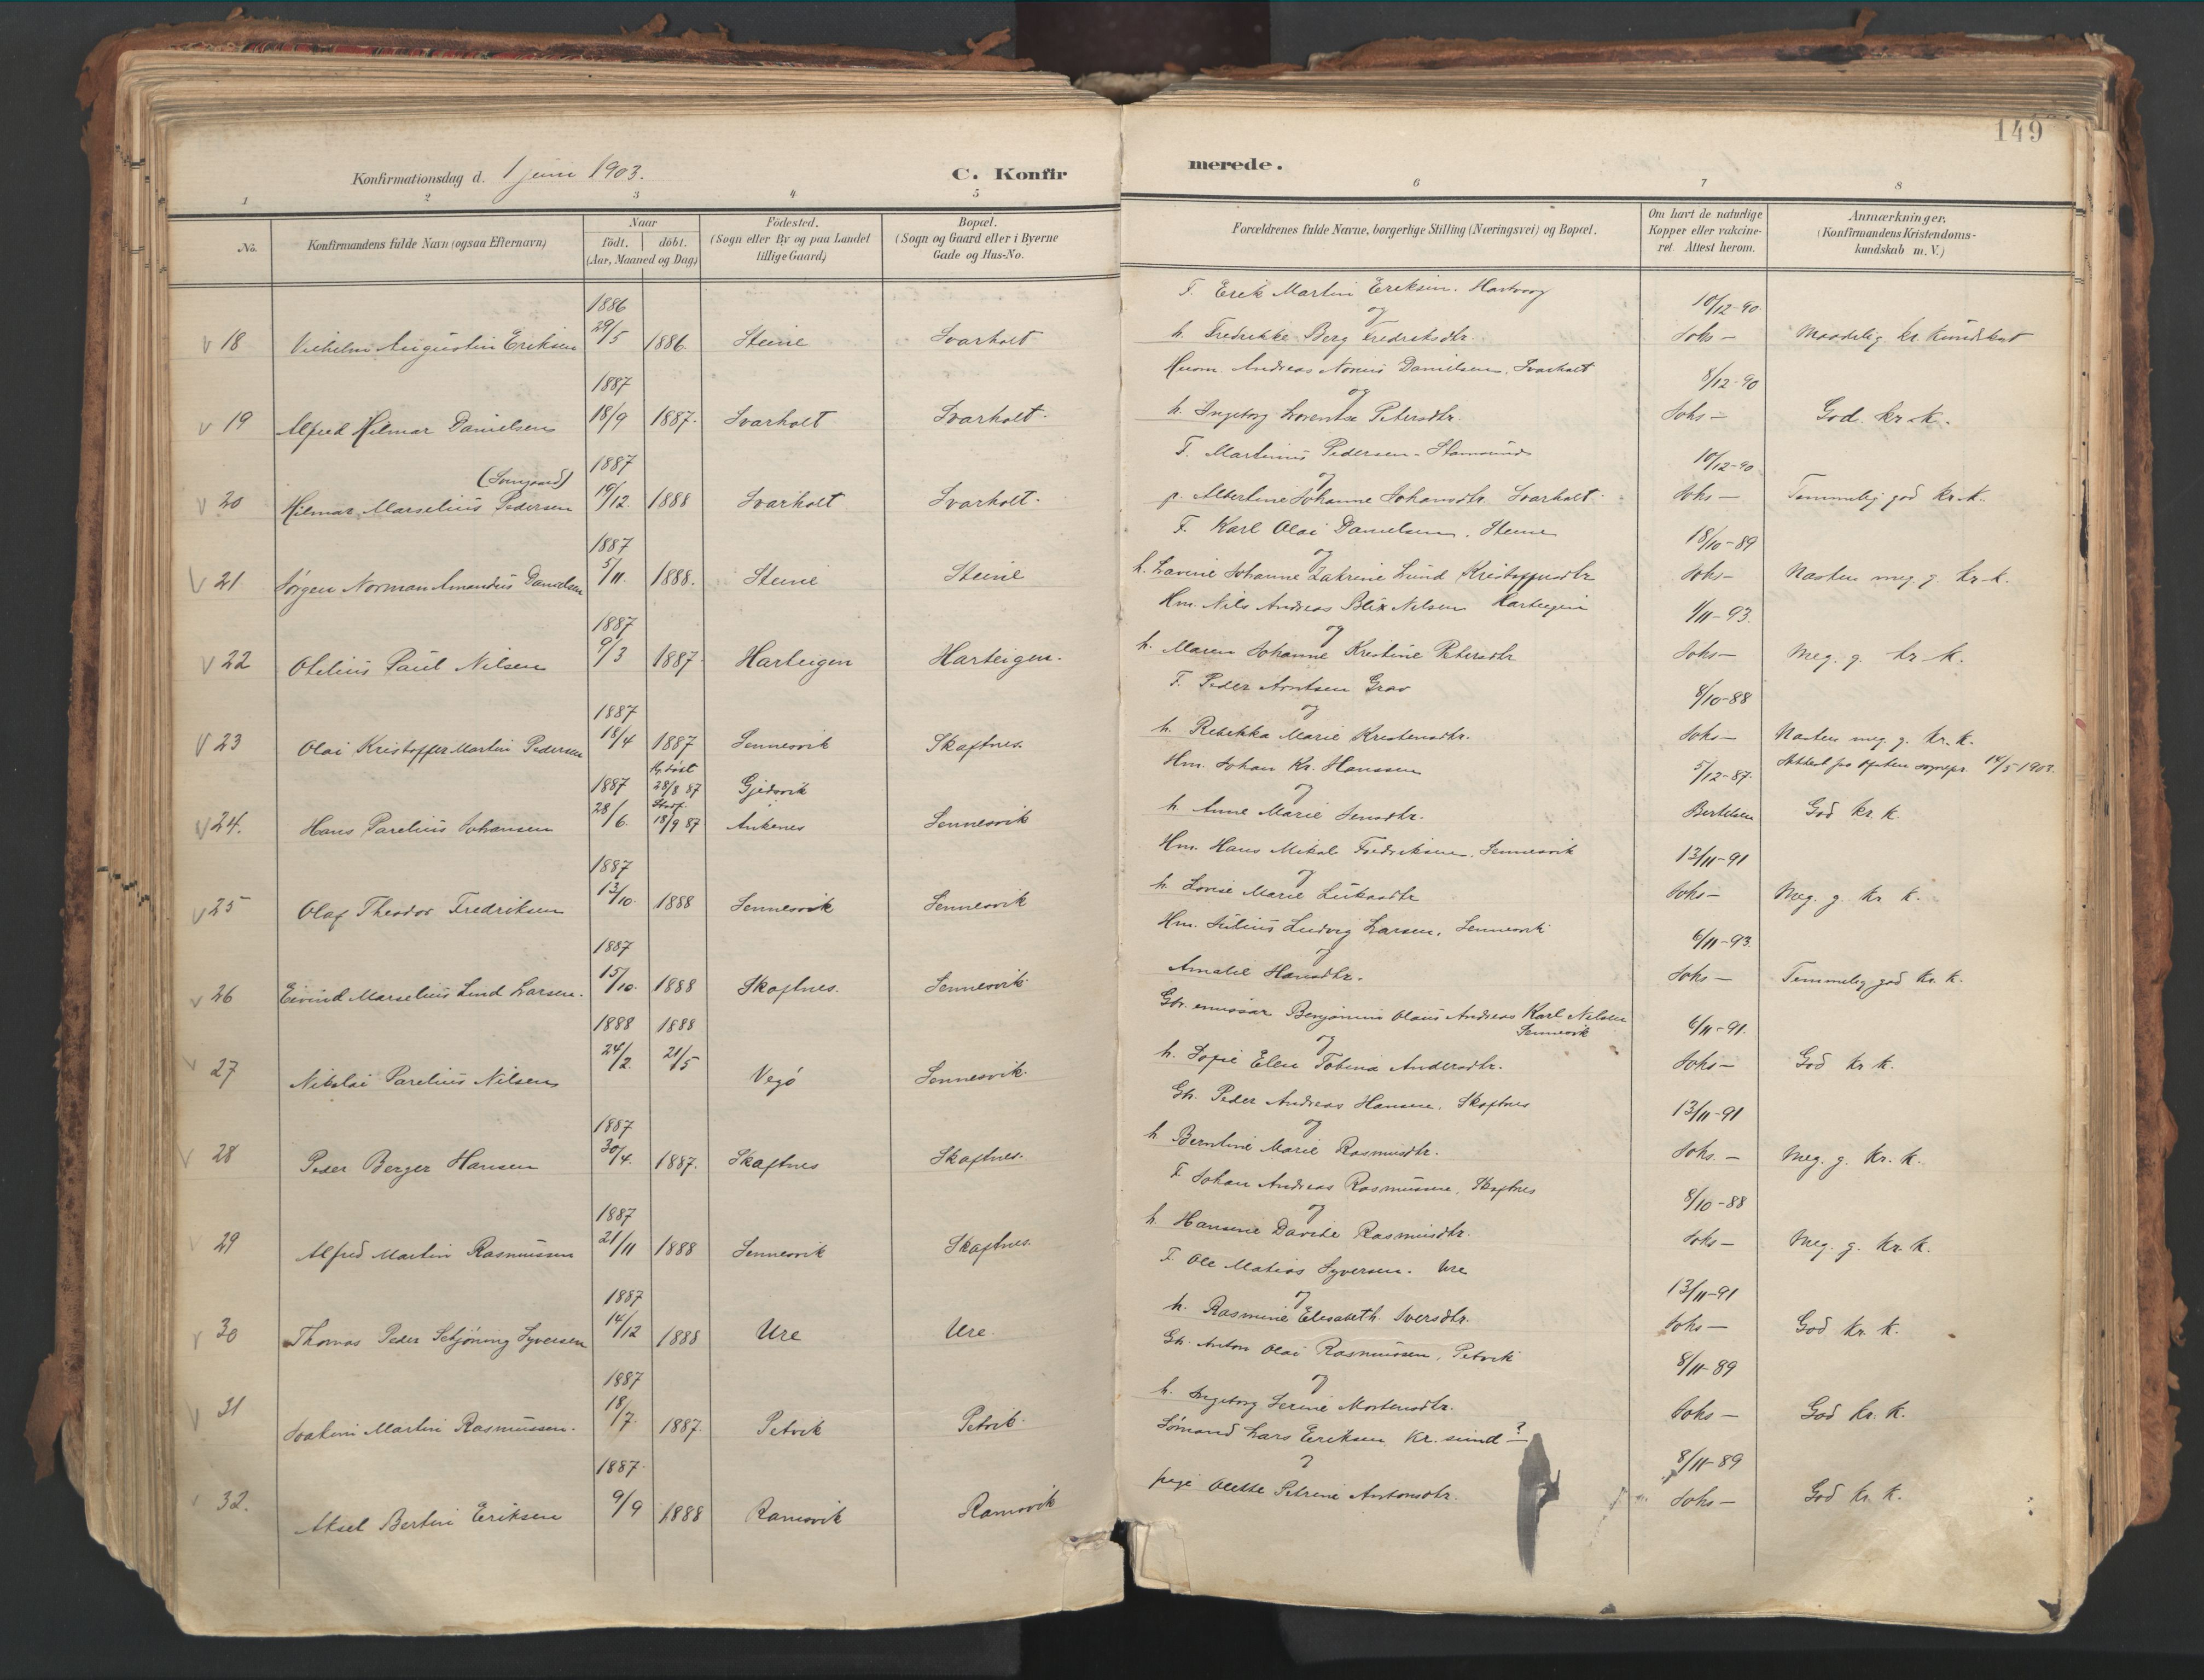 149
Konfirmationsdag d. 1 juni 1903.
C. Konfirmerede.
1 2 3 4 5 6 7 8
No.
Konfirmandens fulde Navn (ogsaa Efternavn)
Naar
födt. | döbt.
(Aar, Maaned og Dag)
Födested.
(Sogn eller By og paa Landet
tillige Gaard)
Bopæl.
(Sogn og Gaard eller i Byerne
Gade og Hus-No.
Forældrenes fulde Navne, borgerlige Stilling (Næringsvei) og Bopæl.
Om havt de naturlige
Kopper eller vakcine-
ret. Attest herom.
Anmærkninger,
(Konfirmandens Kristendoms-
kundskab m. V.)
1886 F. Erik Martin Eriksen. 10/12-90
og
18 Vilhelm Augustin Eriksen 29/5 1886 Steine Svarholt h. Fredrikke Berg Fredriksdtr. Johs— Maadelig kr. kundskab
1887 Husm. Andreas Danielsen, Svarholt 8/12-90
og
19 Alfred Hilmar Danielsen 18/9 1887. Svarholt Svarholt. h. Ingeborg Lorentse Petersdtr. Johs— God. kr. k.
1887 F. Martinus Pedersen - Stamsund 10/12-90
og
20 Hilmar Marselius Pedersen 19/12. 1888 Svarholt Svarholt. p. Albertine Johanne Johansdtr Svarholt. Johs— Temmelig god kr. k.
1887 F. Karl Olai Danielsen, Steine 18/10-89
og
21 Jörgen Norman Amandus Danielsen 5/11. 1888. Steine Steine h. Lavine Johanne Katrine Lund Kristoffersdtr Johs— Næsten meg. g. kr. k.
1887 Hm. Nils Andreas Blix Nilsen Harteigen 1/11-93.
og
22 Otelius Paul Nilsen 9/3 1887. Harteigen Harteigen. h. Maren Johanne Kristine Petersdtr Johs— Meg. g. kr. k.
1887 F. Peder Arntsen Grav 8/10-88
og
23 Olai Kristoffer Martin Pedersen 18/4 1887 Sennesvik Skaftnes. h. Rebekka Marie Kristensdtr. Johs— Næsten meg. g. kr. k.
1887 28/8 87 Gjedsvik Hm. Johan Kr. Hanssen 5/12-87. Attest fra sognepr. 14/5 1903.
og
24. Hans Parelius Johansen 28/6. Stadf. 18/9 87 Ankenes Sennesvik h. Anne Marie Jensdtr. Bertelsen God kr. k.
1887 Hm. Hans Mikal Fredriksen, Sennesvik 13/11-91
og
25 Olaf Theodor Fredriksen 13/10. 1888 Sennesvik Sennesvik h. Lovise Marie Lukasdtr Johs— Meg. g. kr. k.
1887 Hm. Julius Ludvig Larsen, Sennesvik 6/11-93.
og
26 Eivind Marselius Lind Larsen. 15/10. 1888 Skaftnes. Sennesvik. Amalie Hansdtr. Johs— Temmelig god kr. k.
1888 1888 Gbr. emissær Benjamin Olaus Andreas Karl Nilsen Sennesvik 6/11-91.
og
27 Nikolai Parelius Nilsen 24/2. 21/5 Vegö Sennesvik. h. Sofie Elen Tobina Andersdtr. Johs— God kr. k.
1887 Gbr. Peder Andreas Hansen, Skaftnes 13/11-91
og
28 Peder Berger Hansen 30/4. 1887. Skaftnes Skaftnes. h. Berntine Marie Rasmusdtr. Johs.— Meg. g. kr. k.
1887 F Johan Andreas Rasmussen, Skaftnes 8/10-88
og
29 Alfred Martin Rasmussen 21/11 1888 Sennesvik Skaftnes. h. Hansine Dorthe Rasmusdtr. Johs— Meg. g. kr. k.
1887 F. Ole Matias Syversen. Ure 13/11-91
og
30 Thomas Peder Schjöning Syversen 14/12 1888 Ure Ure. h. Rasmine Elisabeth Iversdtr. Johs— God kr. k.
1887 Gbr. Anton Olai Rasmussen, Petvik 8/11-89
og
31 Joakim Martin Rasmussen. 18/7. 1887. Petvik Petvik. h. Ingeborg Serine Mortensdtr. Johs— God kr. k.
1887. Sömand Lars Eriksen Kr. sund? 8/11-89
og
32. Aksel Bertin Eriksen 9/9 1888 Ramsvik Ramsvik pige Olette Petrine Antonsdtr. Johs— God kr. k.